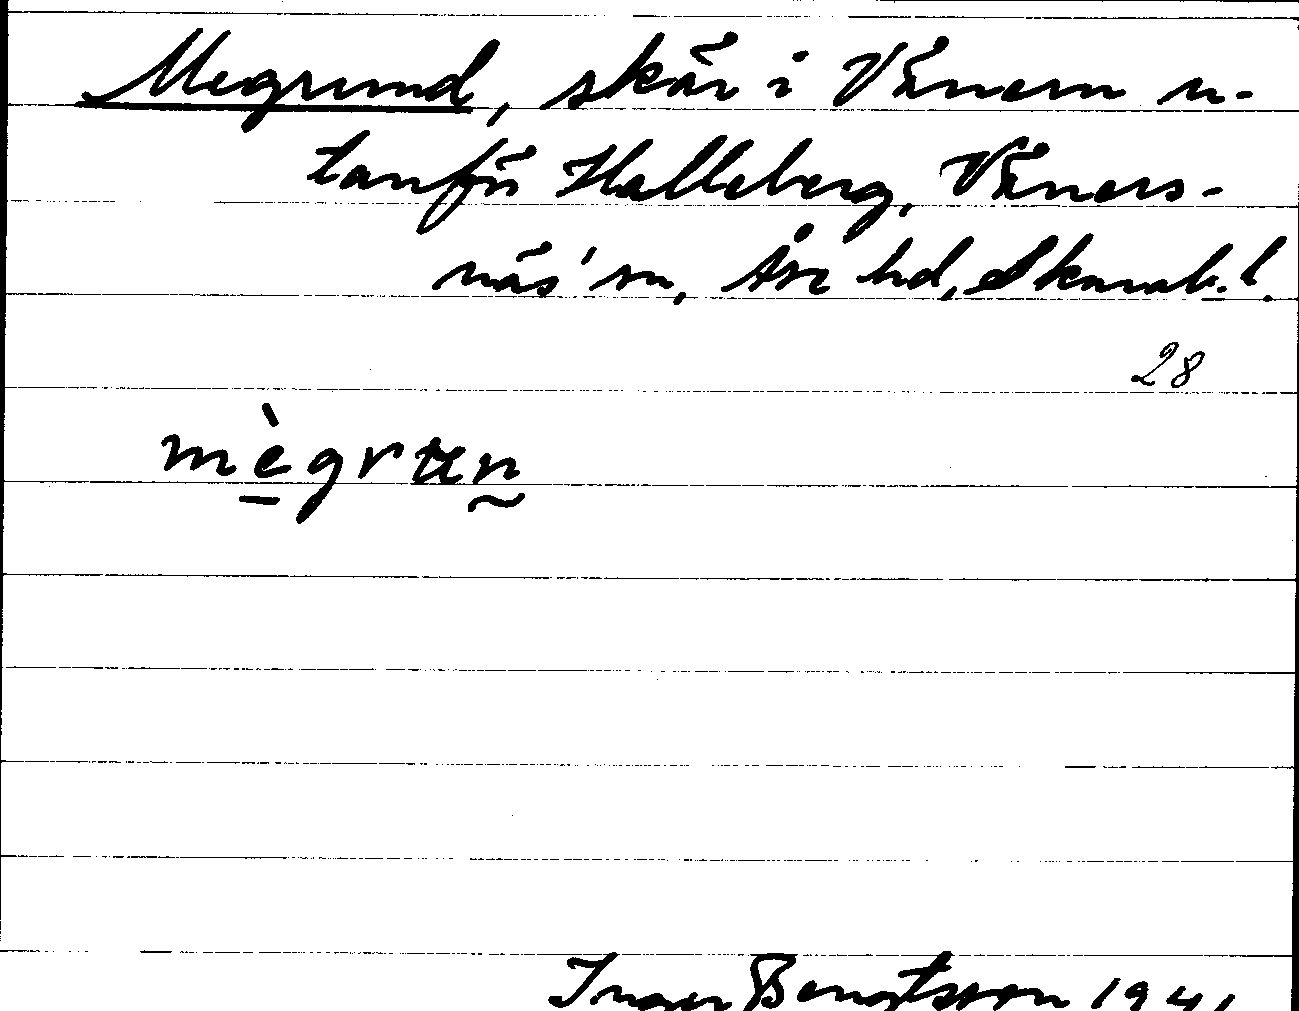 Megrund, skär i Vänern u-
tanför Halleberg, Väners-
näs' sn, Åse hd, Skarab. l.
28
mègrun
Inger Bengtsson 1941